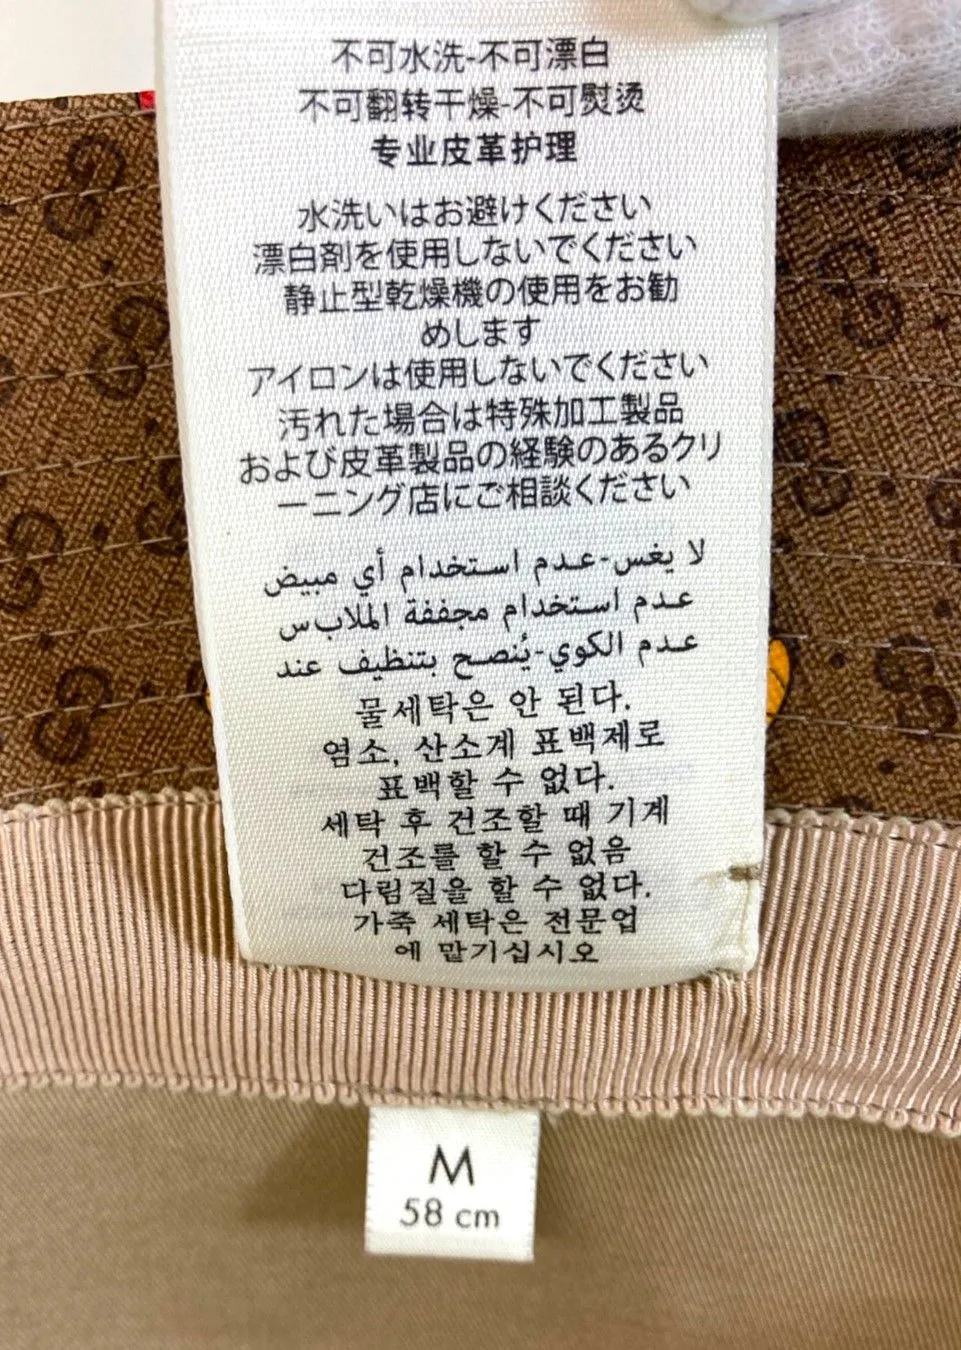 不可水洗-不可漂白
不可翻转干燥-不可熨烫
专业皮革护理
水洗いはお避けください
漂白剤を使用しないでください
静止型乾燥機の使用をお勧
めします
アイロンは使用しないでください
汚れた場合は特殊加工製品
および皮革製品の経験のあるクリ
ーニング店にご相談ください
لا يغس-عدم استخدام أي مبيض
عدم استخدام مجففة الملابس
عدم الكوي-يُنصح بتنظيف عند
물세탁은 안 된다.
염소, 산소계 표백제로
표백할 수 없다.
세탁 후 건조할 때 기계
건조를 할 수 없음
다림질을 할 수 없다.
가죽 세탁은 전문업
에 맡기십시오
M
58 cm